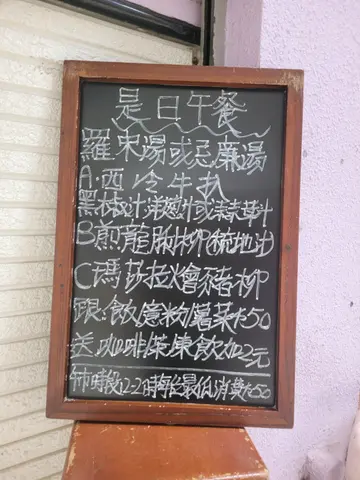 是日午餐
羅宋湯或忌廉湯
A.西冷牛扒
黑椒汁洋葱汁或蒜茸汁
B煎龍脷柳(葡地汁)
C瑪莎拉燴豬柳
跟:飯意粉薯菜$50
送咖啡茶凍飲加2元
午市時段12-2時每位最低消費$50